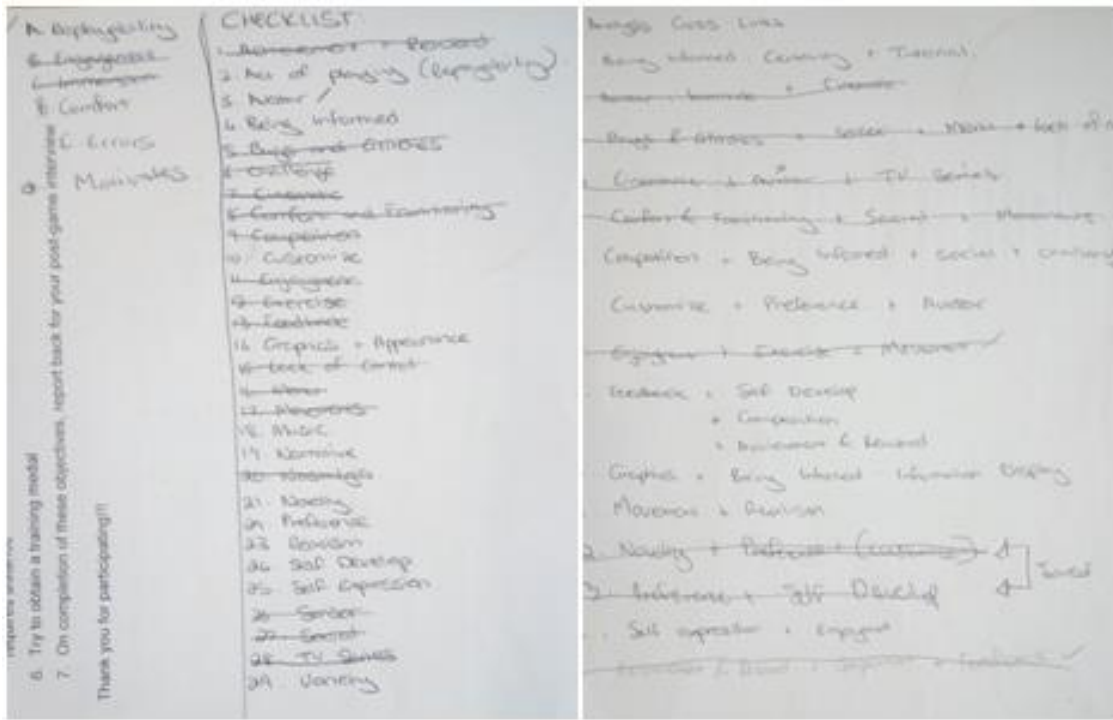 A. Roleplaying
B. Engagement
C. Immersion
B. Comfort
E. Errors
Motivates
required
6. Try to obtain a training medal
7. On completion of these objectives, report back for your post-game interview
Thank you for participating!!!
CHECKLIST
1. Achievement + Reward
2. Act of playing (Roleplaying)
3. Avatar
4. Being informed
5. Bugs and Glitches
6. Challenge
7. Cinematic
8. Comfort and Functioning
9. Competition
10. Customize
11. Enjoyment
12. Exercise
13. Feedback
14. Graphics + Appearance
15. Lack of Control
16.
17. Movements
18. Music
19. Narrative
20. Nostalgia
21. Novelty
22. Preference
23. Realism
24. Self Develop
25. Self Expression
26. Sensor
27. Social
28. TV Series
29. Variety
Analysis Cross Links
Being informed + Tutorial
+ Cinematic
Bugs & Glitches + Sensor + + Lack of
Cinematic + Avatar + TV Series
Comfort & Functioning + Sensor + Movement
Competition + Being informed + Social +
Customize + Preference + Avatar
Enjoyment + Exercise + Movement
Feedback + Self Develop
+ Competition
+ Achievement & Reward
Graphics + Being Informed Information Display
Movement + Realism
2. Novelty + Preference +
3. Preference + Self Develop
Self expression + Enjoyment